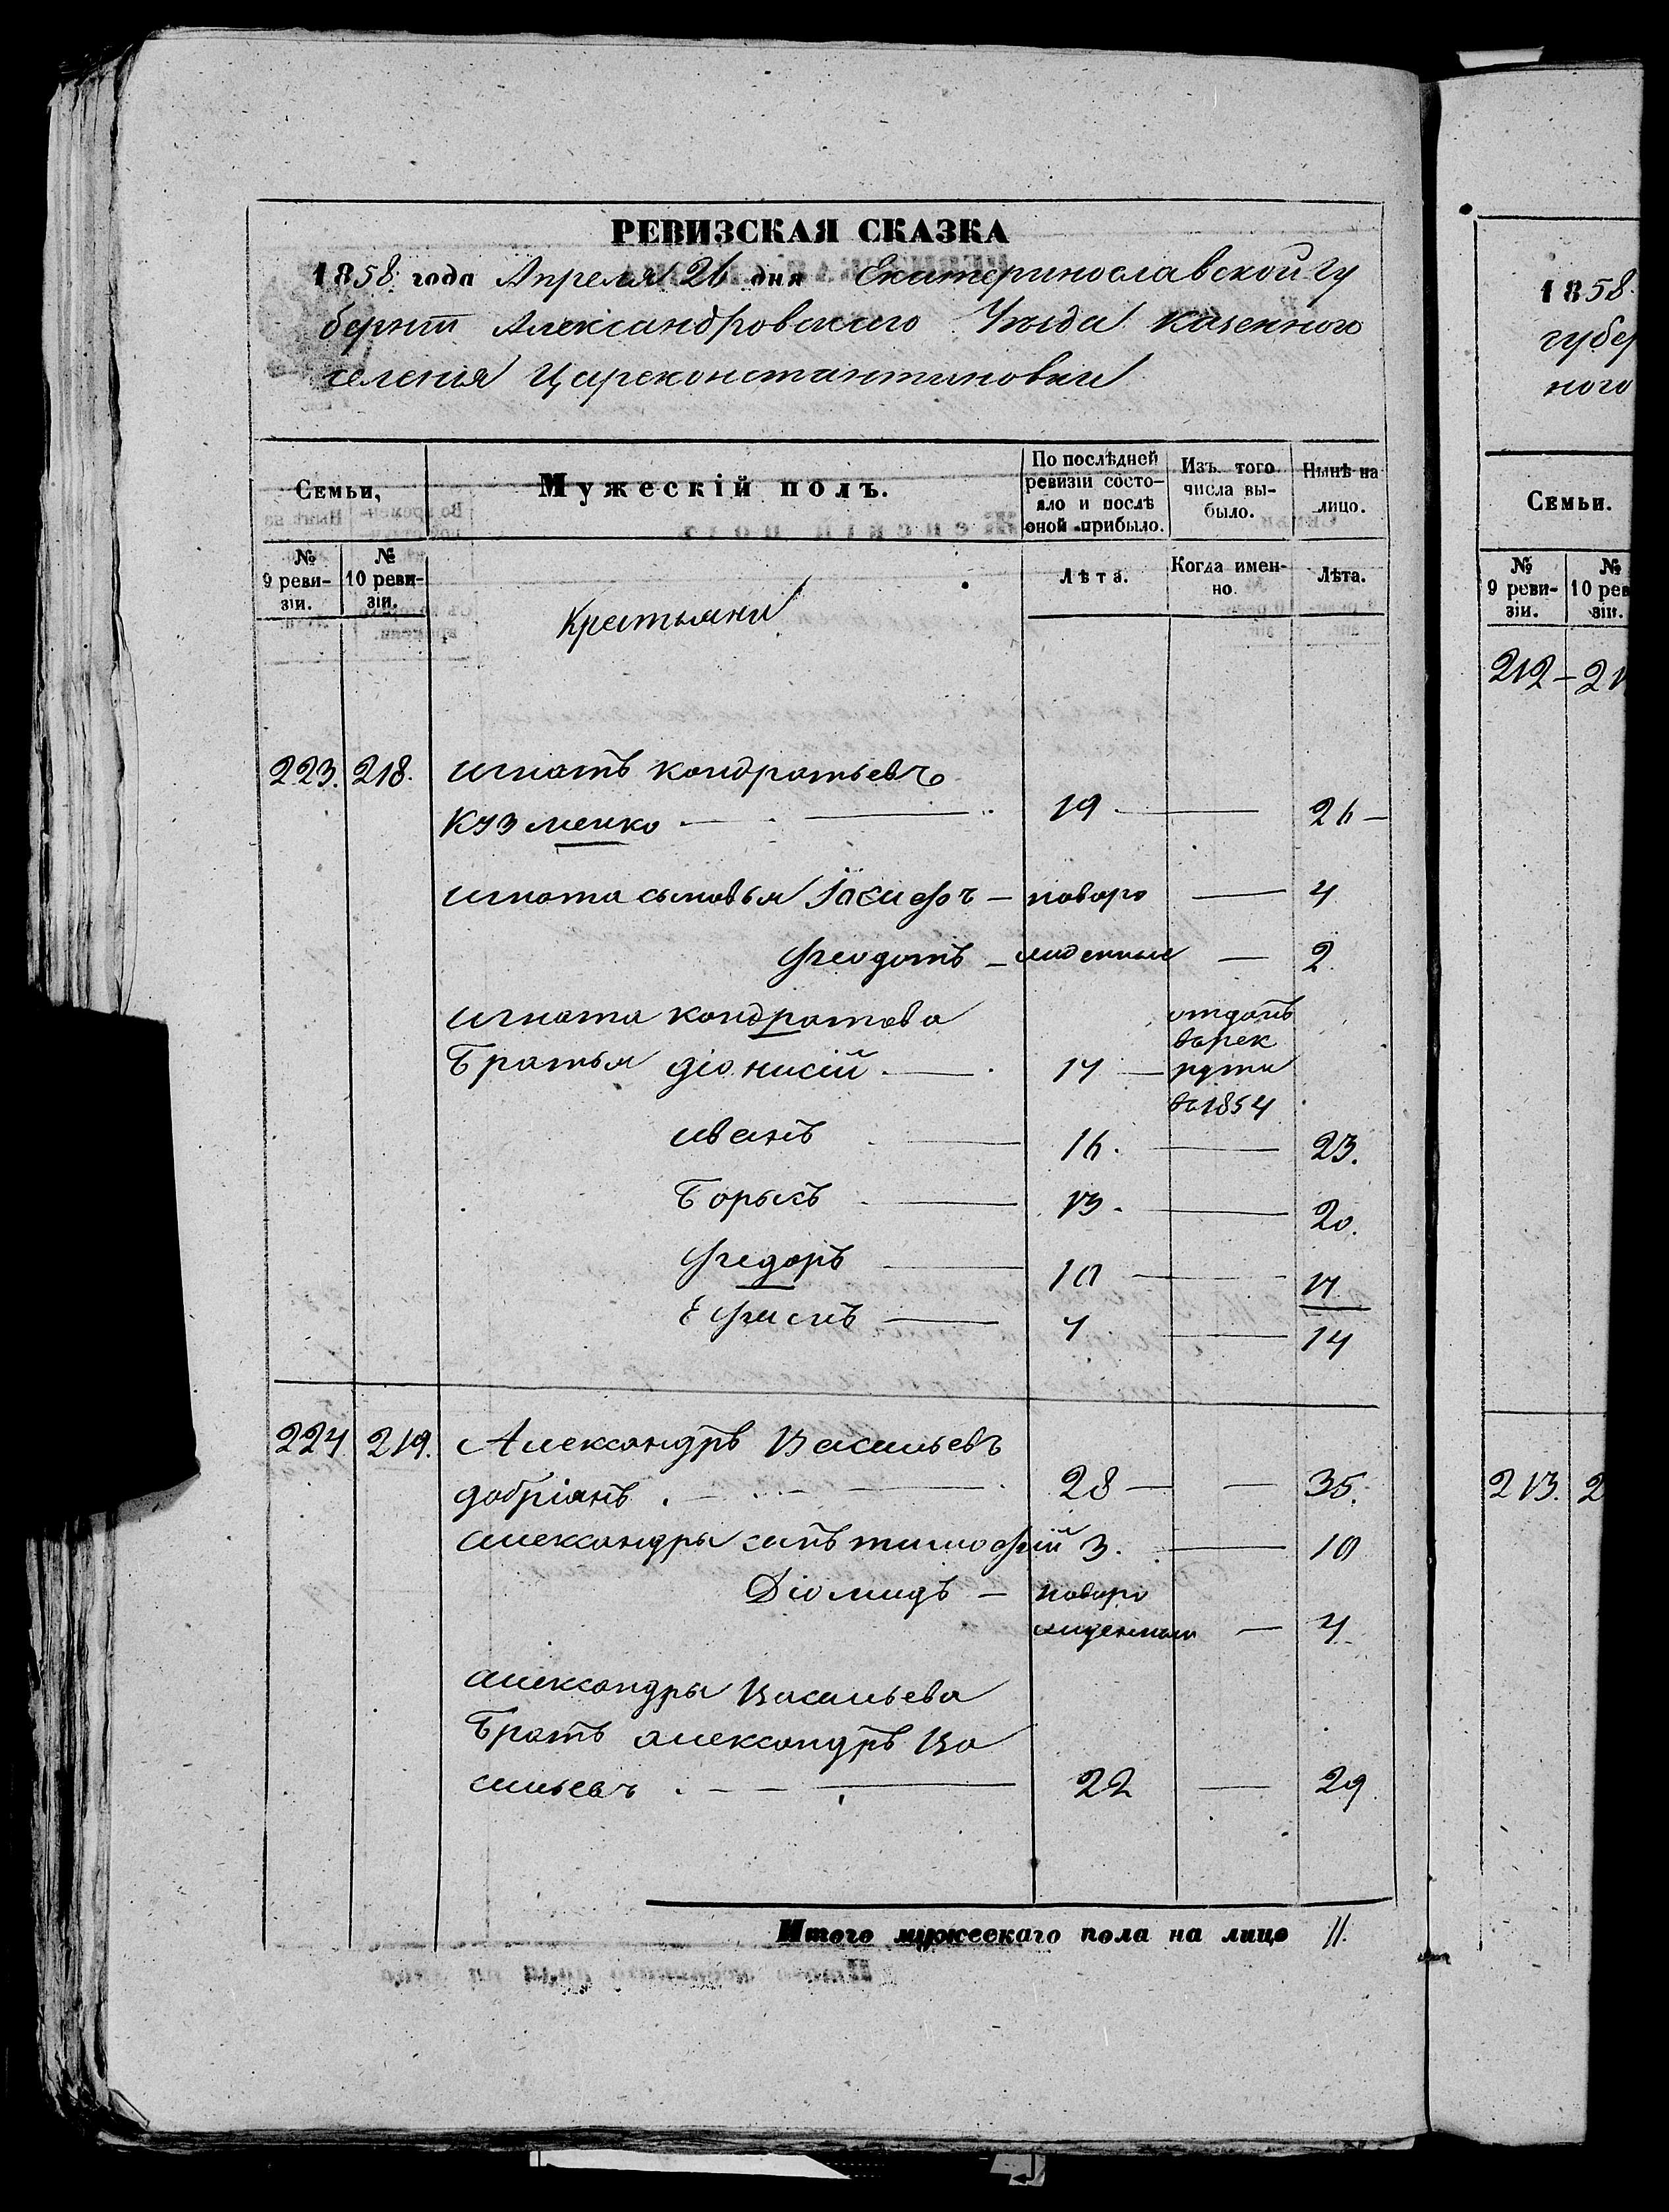 РЕВИЗСКАЯ СКАЗКА
1858 года Апреля 26 дня Екатеринославской гу
берніи Александровскаго Уѣзда казенного
селенія Цареконстантиновки
Семьи,
Мужескій полъ.
По послѣдней ревизіи состо-
яло и послѣ
оной прибыло.
Изъ того
числа вы-
было.
Нынѣ на
лицо.
№
9 реви-
зіи.
№
10 реви-
зіи.
Лѣта.
Когда имен-
но.
Лѣта.
Крестьяни
223. 218. игнатъ кондратьевъ
кузменко 19 26
игната сыновья Іосифъ новоро 4
Феодотъ жденные 2
игната кондратова
отданъ
въ рек
Братья діонисій 17 руты
въ 1854
иванъ 16. 23.
Борысъ 13. 20.
Федоръ 10 17
Ефимъ 7. 14
224 219. Александръ Васильевъ
добріанъ 28 35.
александры сынъ тимофѣй 3. 10
Діомидъ новоро
жденный 4
александры Васильева
Братъ александръ Ва
сильевъ 22 29
Итого мужескаго пола на лицо 11.
1858
губер
ного
Семьи.
№
9 реви-
зіи.
№
10 рев
зіи.
212 21
213. 2